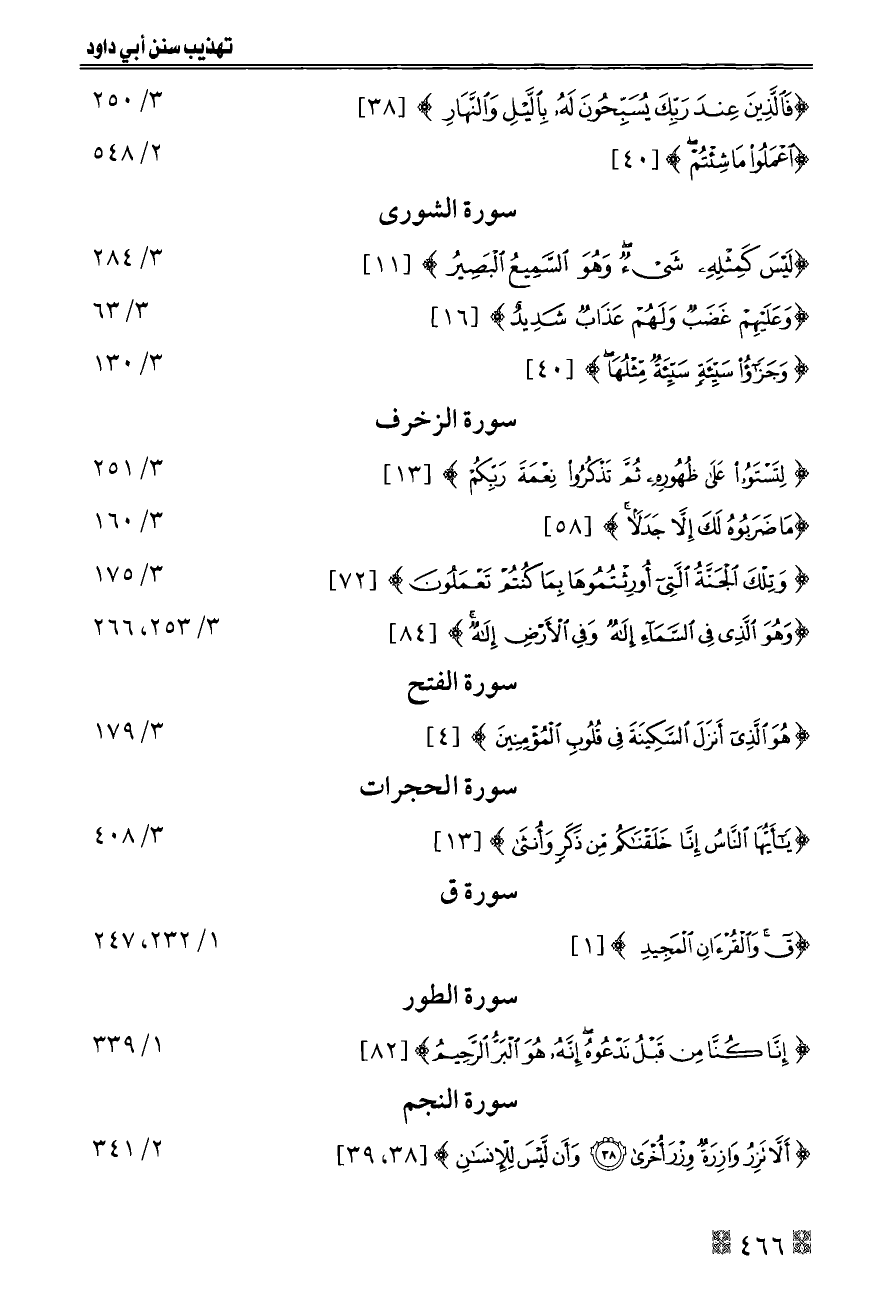 تهذيب سنن أبي داود
﴿فَٱلَّذِينَ عِندَ رَبِّكَ يُسَبِّحُونَ لَهُۥ بِٱلَّيْلِ وَٱلنَّهَارِ ﴾ [٣٨] ٣/ ٢٥٠
﴿ٱعْمَلُوا۟ مَا شِئْتُمْ ۖ ﴾ [٤٠] ٢/ ٥٤٨
سورة الشورى
﴿لَيْسَ كَمِثْلِهِۦ شَىْءٌ ۖ وَهُوَ ٱلسَّمِيعُ ٱلْبَصِيرُ ﴾ [١١] ٣/ ٢٨٤
﴿وَعَلَيْهِمْ غَضَبٌ وَلَهُمْ عَذَابٌ شَدِيدٌ﴾ [١٦] ٣/ ٦٣
﴿ وَجَزَٰٓؤُا۟ سَيِّئَةٍ سَيِّئَةٌ مِّثْلُهَا ۖ ﴾ [٤٠] ٣/ ١٣٠
سورة الزخرف
﴿ لِتَسْتَوُۥا۟ عَلَىٰ ظُهُورِهِۦ ثُمَّ تَذْكُرُوا۟ نِعْمَةَ رَبِّكُمْ ﴾ [١٣] ٣/ ٢٥١
﴿مَا ضَرَبُوهُ لَكَ إِلَّا جَدَلًۢا ۚ ﴾ [٥٨] ٣/ ١٦٠
﴿ وَتِلْكَ ٱلْجَنَّةُ ٱلَّتِىٓ أُورِثْتُمُوهَا بِمَا كُنتُمْ تَعْمَلُونَ ﴾ [٧٢] ٣/ ١٧٥
﴿وَهُوَ ٱلَّذِى فِى ٱلسَّمَآءِ إِلَٰهٌ وَفِى ٱلْأَرْضِ إِلَٰهٌ ۚ ﴾ [٨٤] ٣/ ٢٥٣، ٢٦٦
سورة الفتح
﴿ هُوَ ٱلَّذِىٓ أَنزَلَ ٱلسَّكِينَةَ فِى قُلُوبِ ٱلْمُؤْمِنِينَ ﴾ [٤] ٣/ ١٧٩
سورة الحجرات
﴿ يَٰٓأَيُّهَا ٱلنَّاسُ إِنَّا خَلَقْنَٰكُم مِّن ذَكَرٍ وَأُنثَىٰ ﴾ [١٣] ٣/ ٤٠٨
سورة ق
﴿قٓ ۚ وَٱلْقُرْءَانِ ٱلْمَجِيدِ ﴾ [١] ١/ ٢٣٢، ٢٤٧
سورة الطور
﴿ إِنَّا كُنَّا مِن قَبْلُ نَدْعُوهُ ۖ إِنَّهُۥ هُوَ ٱلْبَرُّ ٱلرَّحِيمُ﴾ [٨٢] ١/ ٣٣٩
سورة النجم
﴿ أَلَّا تَزِرُ وَازِرَةٌ وِزْرَ أُخْرَىٰ ٣٨ وَأَن لَّيْسَ لِلْإِنسَٰنِ ﴾ [٣٨، ٣٩] ٢/ ٣٤١
٤٦٦